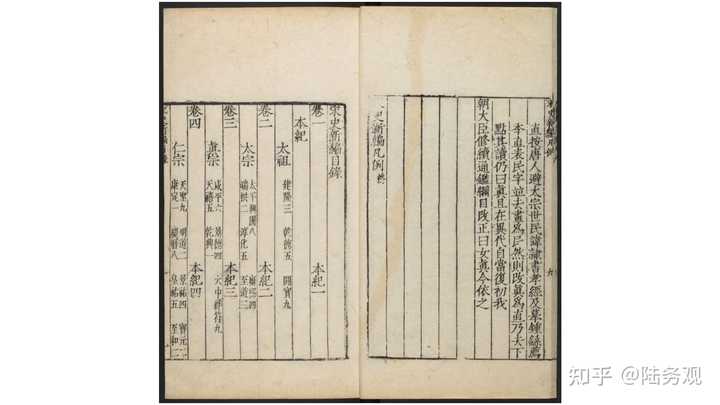 直按唐人避太宗世民諱隸書孝經及某鍾銘薦
李直表民字並去畫爲巳然則改眞爲直乃去下
點其讀仍曰眞且在異代自當復初我
朝大臣修續通鑑綱目改正曰女眞今依之
史新編凡例終
宋史新編目錄
卷一 本紀一
本紀
太祖 建隆三 乾德五 開寶九
卷二 本紀二
太宗 太平興國八 雍熙四
端拱二 淳化五 至道三
卷三 本紀三
眞宗 咸平六 景德四 大中祥符九
天禧五 乾興一
卷四 本紀四
仁宗 天聖九 明道二 景祐四 寶元二
康定一 慶曆八 皇祐五 至和二
知乎 @陆务观